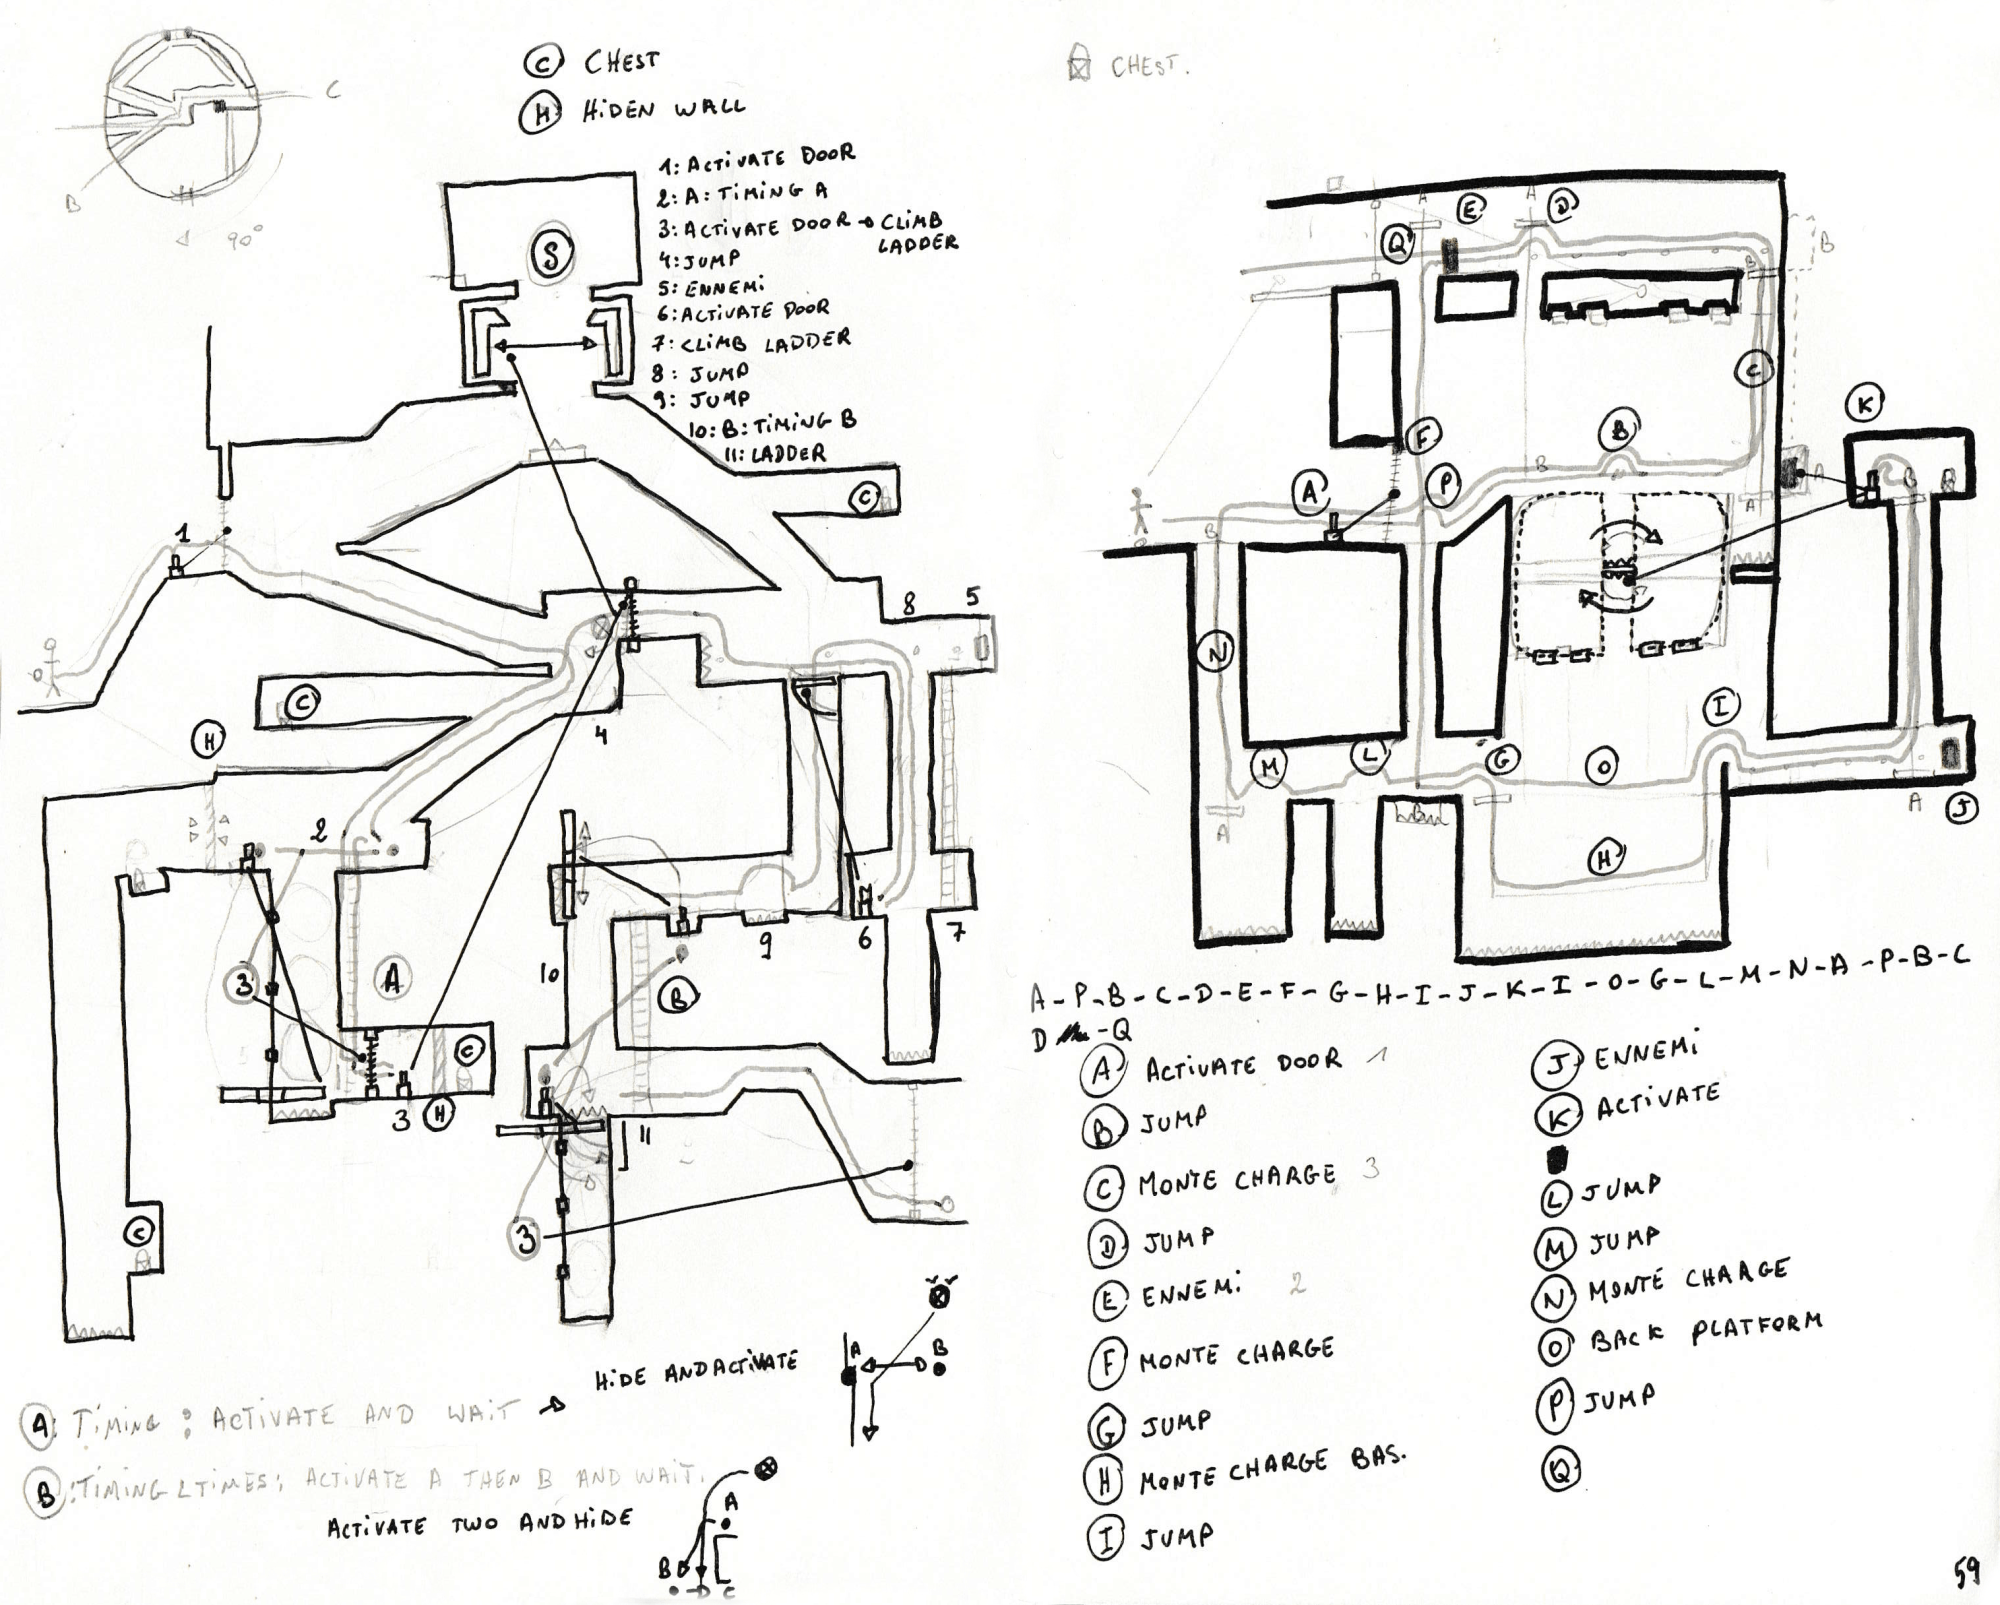 C
B
90°
C CHEST
H HIDEN WALL
1: ACTIVATE DOOR
2: A: TIMING A
3: ACTIVATE DOOR → CLIMB
LADDER
4: JUMP
5: ENNEMI
6: ACTIVATE DOOR
7: CLIMB LADDER
8: JUMP
9: JUMP
10: B: TIMING B
11: LADDER
S
C
1
8
5
C
4
H
2
3
A
C
3
H
10
9
6
7
B
11
C
3
HIDE AND ACTIVATE
A
B
A: TIMING: ACTIVATE AND WAIT →
B: TIMING 2 TIMES: ACTIVATE A THEN B AND WAIT.
ACTIVATE TWO AND HIDE
A
B
C
CHEST.
A
E
A
D
Q
B
B
C
K
F
B
A
P
B
A
B
B
A
N
I
M
L
G
O
A
B
A
J
H
A-P-B-C-D-E-F-G-H-I-J-K-I-O-G-L-M-N-A-P-B-C
D -Q
A ACTIVATE DOOR 1
B JUMP
C MONTE CHARGE 3
D JUMP
E ENNEMI 2
F MONTE CHARGE
G JUMP
H MONTE CHARGE BAS.
I JUMP
J ENNEMI
K ACTIVATE
L JUMP
M JUMP
N MONTE CHARGE
O BACK PLATFORM
P JUMP
Q
59